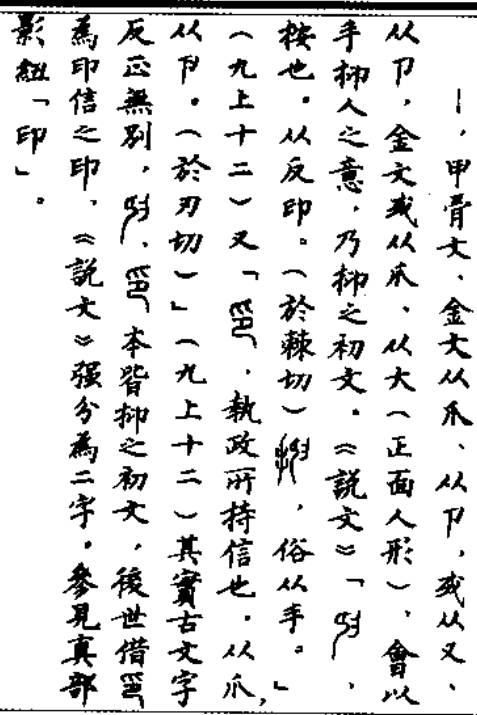 ｜，甲骨文、金文从爪、从卩，或从又、
从卩，金文或从爪、从大（正面人形），會以
手抑人之意，乃抑之初文。《説文》「
按也。从反印。（於棘切），俗从手。」
（九上十二）又「，執政所持信也。从爪，
从卩。（於刃切）」（九上十二）其實古文字
反正無别，、本皆抑之初文，後世借
為印信之印，《説文》强分為二字。參見真部
影紐「印」。